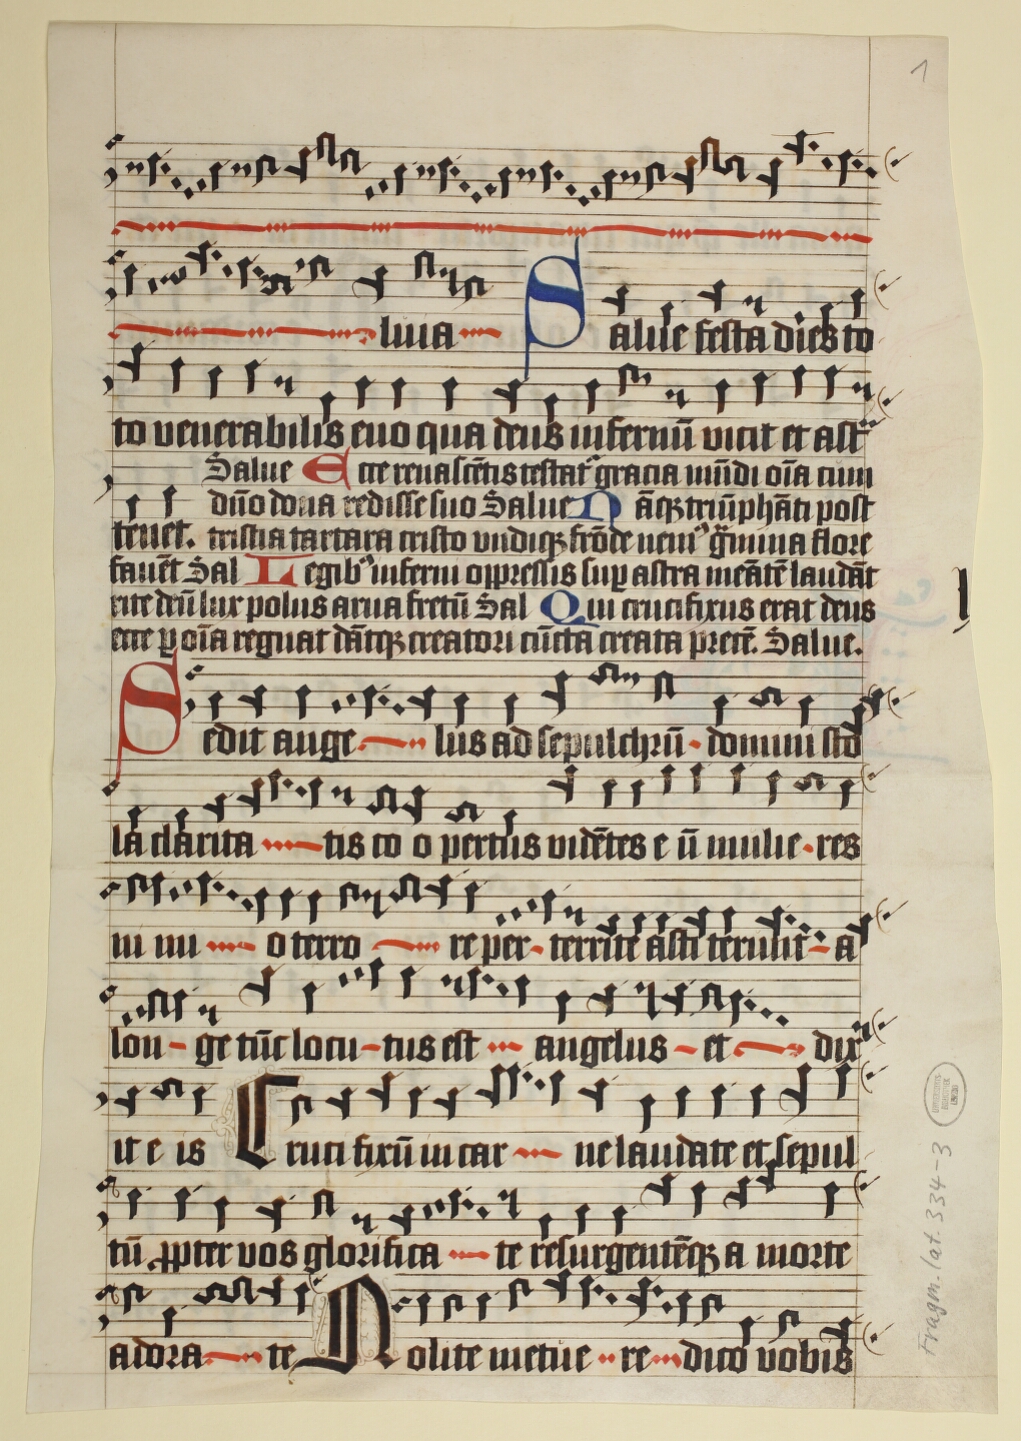 1
luia Salue festa dies to
to venerabilis euo qua deus infernū vicit et ast
Salue Ecce renascētis testat᷒ gracia mūdi oīa cum
dn̄o dona redisse suo Salue Nāqꝫ triūphāti post
tenet. tristia tartara cristo vndiqꝫ frōde nem᷒ gͣmina flore
fauēt Sal Legib᷒ inferni oppressis suꝑ astra meātē laudāt
rite deū lux polus arua fretū Sal Qui crucifixus erat deus
ecce ꝑ oīa regnat dātqꝫ creatori cūcta creata precē. Salue.
Sedit ange lus ad sepulchrū domini sto
la clarita tis co o pertus vidētes e ū mulie res
ni mi o terro re per territe asti terunt a
lon ge tūc locu tus est angelus et dix
it e is Cruci fixū in car ne laudate et sepul
tū ꝓpter vos glorifica te resurgentēqꝫ a morte
adora te Nolite metue re dico vobis
Fragm. lat. 334-3